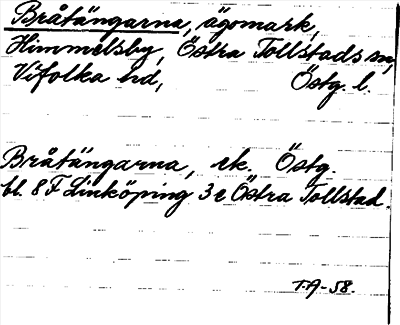 Bråtängarna, ägomark,
Himmelsby, Östra Tollstads sn,
Vifolka hd, Östg. l.
Bråtängarna, ek. Östg.
bl. 8 F Linköping 3 e Östra Tollstad.
T.A-58.